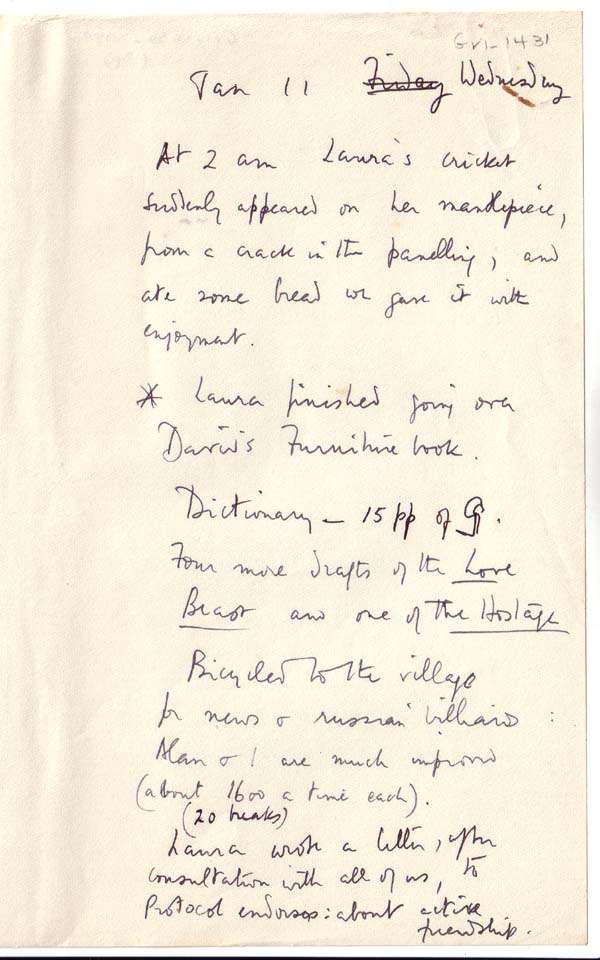 Gri-1431
Jan 11 Friday Wednesday
At 2 am Laura's cricket
suddenly appeared on her mantlepiece,
from a crack in the panelling, and
ate some bread we gave it with
enjoyment.
* Laura finished going over
David's Furniture book.
Dictionary – 15 pp of G.
Four more drafts of the Love
Beast and one of the Hostage
Bicycled to the village
for news & russian billiards :
Alan & I are much improved
(about 1600 a time each).
(20 breaks)
Laura wrote a letter, after
consultation with all of us, to
Protocol endorsers: about active
friendship.